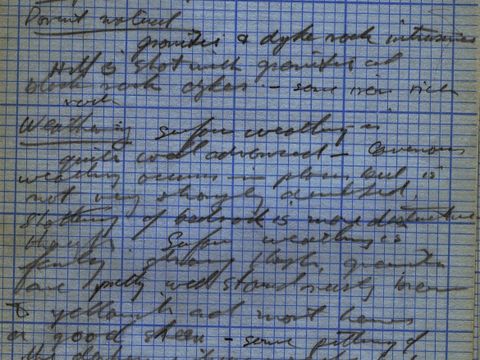 Parent material
granites & dyke rock intrusives
Hill is shot with granites and
black rock dykes - some iron rich
rock
Weathering Surface weathering is
quite well advanced - Cavernous
weathering occurs in places but is
not very strongly developed
of bedrock is more distinctive
Surface weathering is
fairly strong granites
are pretty well stained mostly brown
to yellowish and most have
a good sheen - some pitting of
the